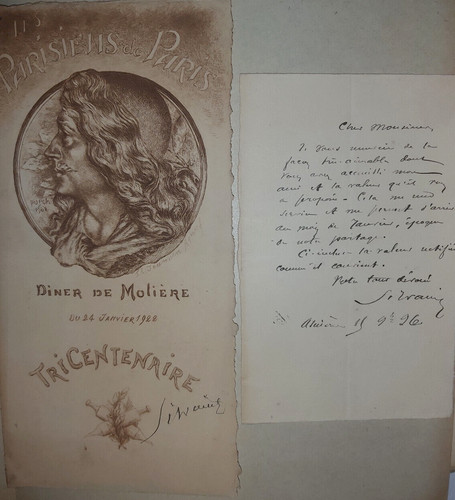 Les
Parisiens de Paris
Dîner de Molière
du 24 Janvier 1922
TRICENTENAIRE
Silvain
Cher Monsieur,
Je vous remercie de la
façon très aimable dont
vous avez accueilli mon
ami et la valeur qu'il vous
a proposée. Cela me rend
service et me permet d'arriver
au mois de Janvier, époque
de notre partage.
Ci-inclus la valeur rectifiée
comme il convient.
Votre tout dévoué
Silvain
15 9bre 26